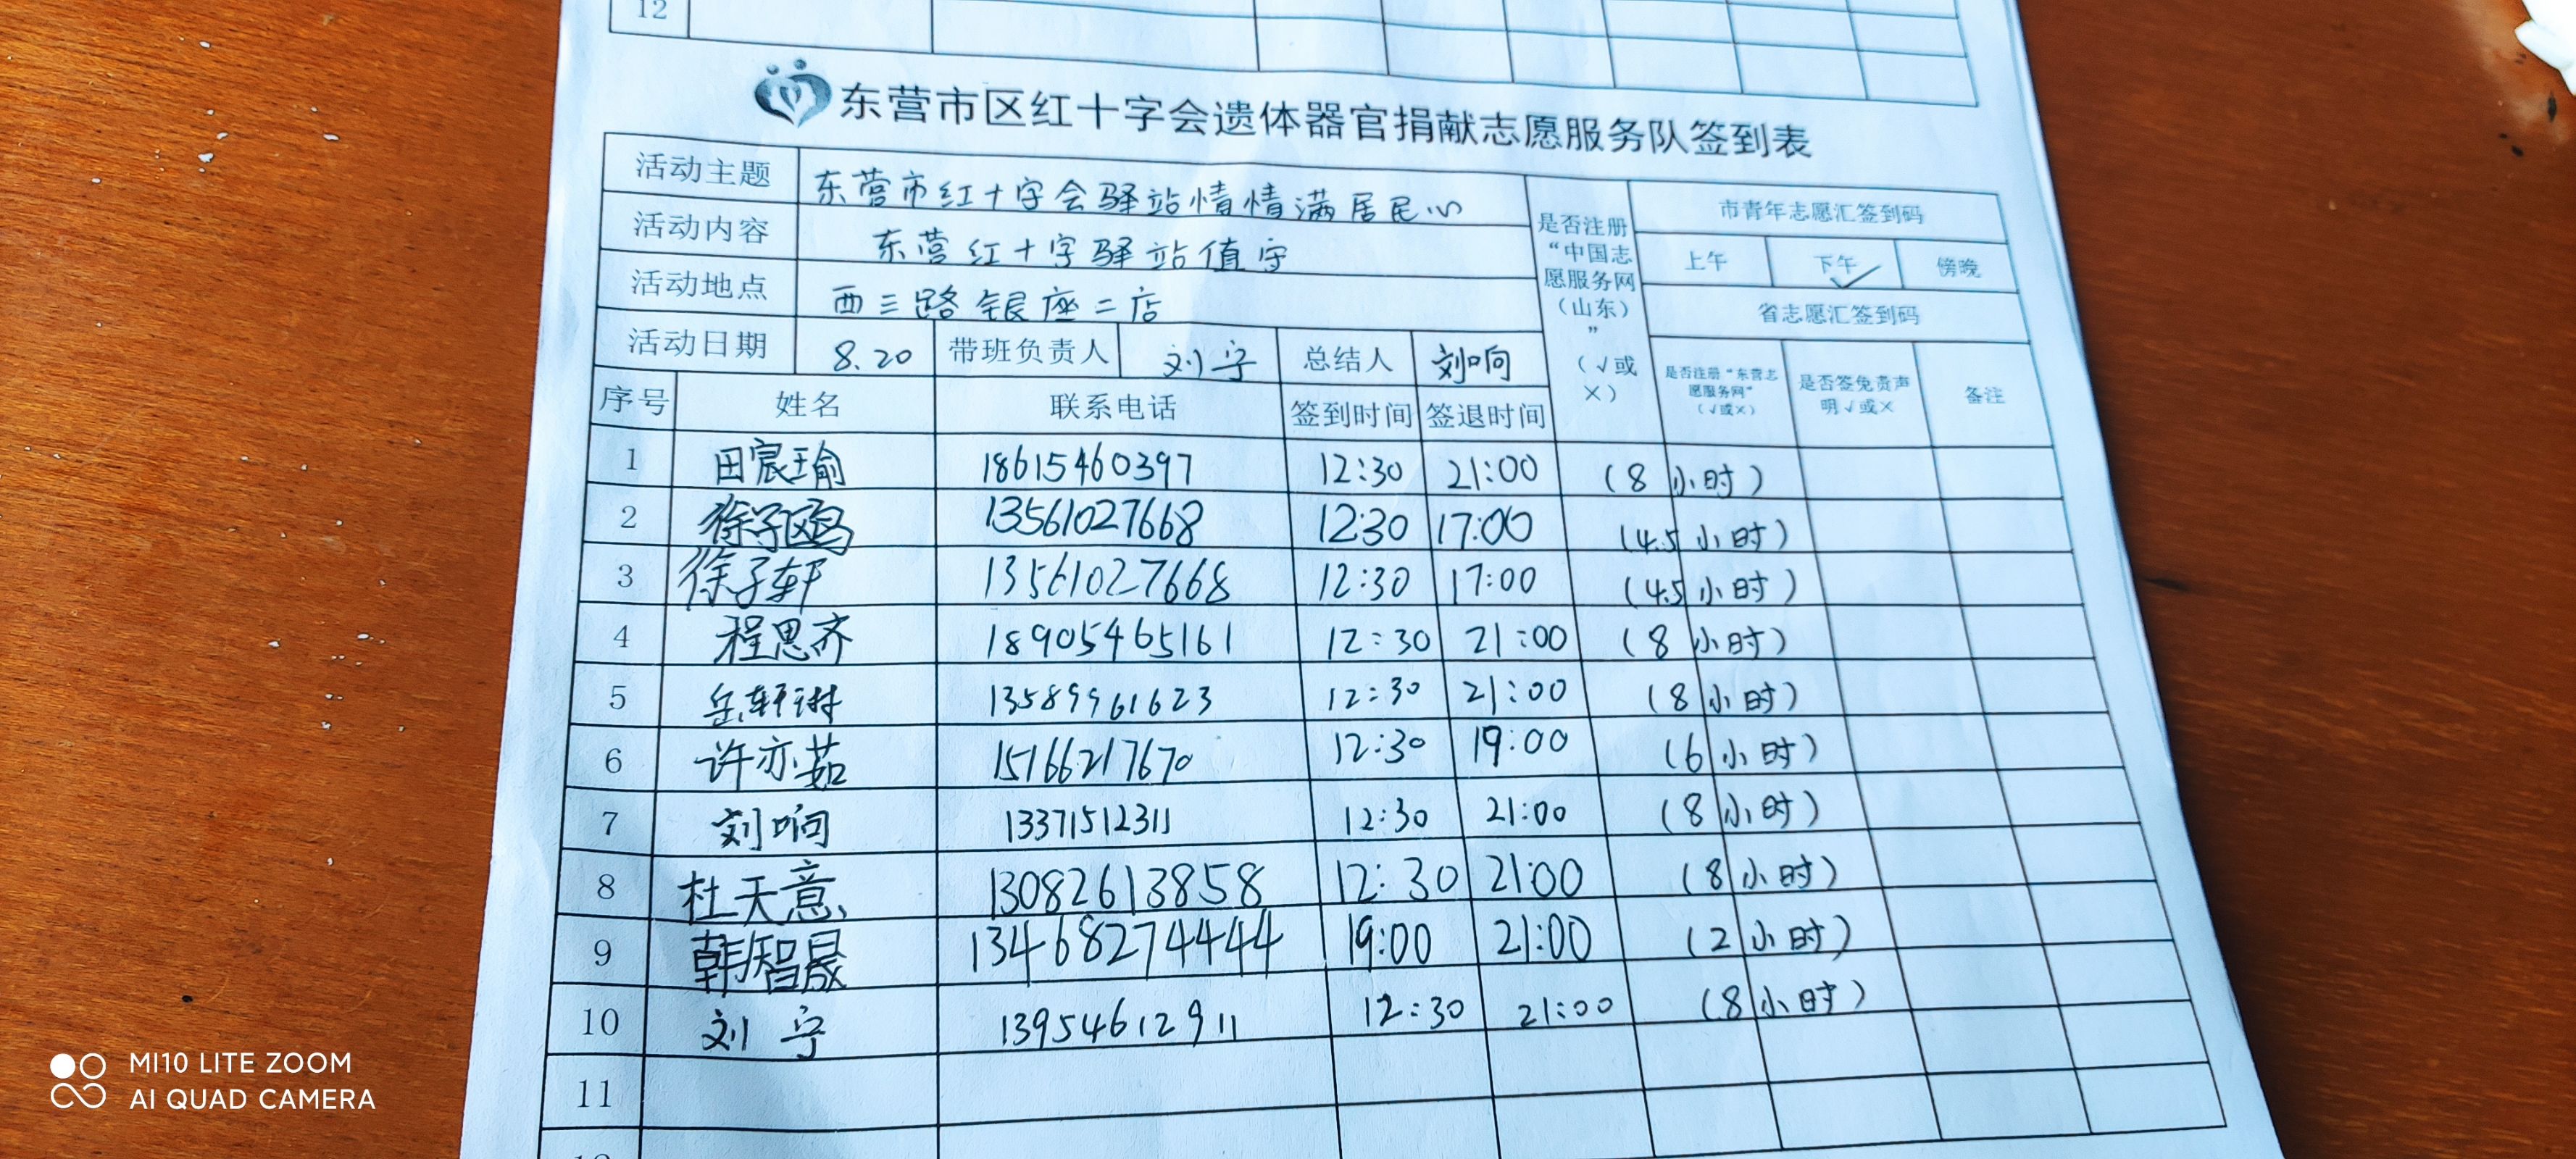 12
东营市区红十字会遗体器官捐献志愿服务队签到表
活动主题 东营市红十字会驿站情情满居民心
活动内容 东营红十字驿站值守
活动地点 西三路银座二店
活动日期 8.20 带班负责人 刘宁 总结人 刘响
是否注册“中国志愿服务网（山东）”（√或×）
市青年志愿汇签到码
上午 下午 ✓ 傍晚
省志愿汇签到码
是否注册“东营志愿服务网”（√或×） 是否签免责声明√或× 备注
序号 姓名 联系电话 签到时间 签退时间
1 田宸瑜 18615460397 12:30 21:00 (8小时)
2 徐子鸥 13561027668 12:30 17:00 (4.5小时)
3 徐子轩 13561027668 12:30 17:00 (4.5小时)
4 程思齐 18905465161 12:30 21:00 (8小时)
5 岳轩琳 13589961623 12:30 21:00 (8小时)
6 许亦茹 15166217670 12:30 19:00 (6小时)
7 刘响 13371512311 12:30 21:00 (8小时)
8 杜天意 13082613858 12:30 21:00 (8小时)
9 韩智晟 13468274444 19:00 21:00 (2小时)
10 刘宁 13954612911 12:30 21:00 (8小时)
11
MI10 LITE ZOOM
AI QUAD CAMERA